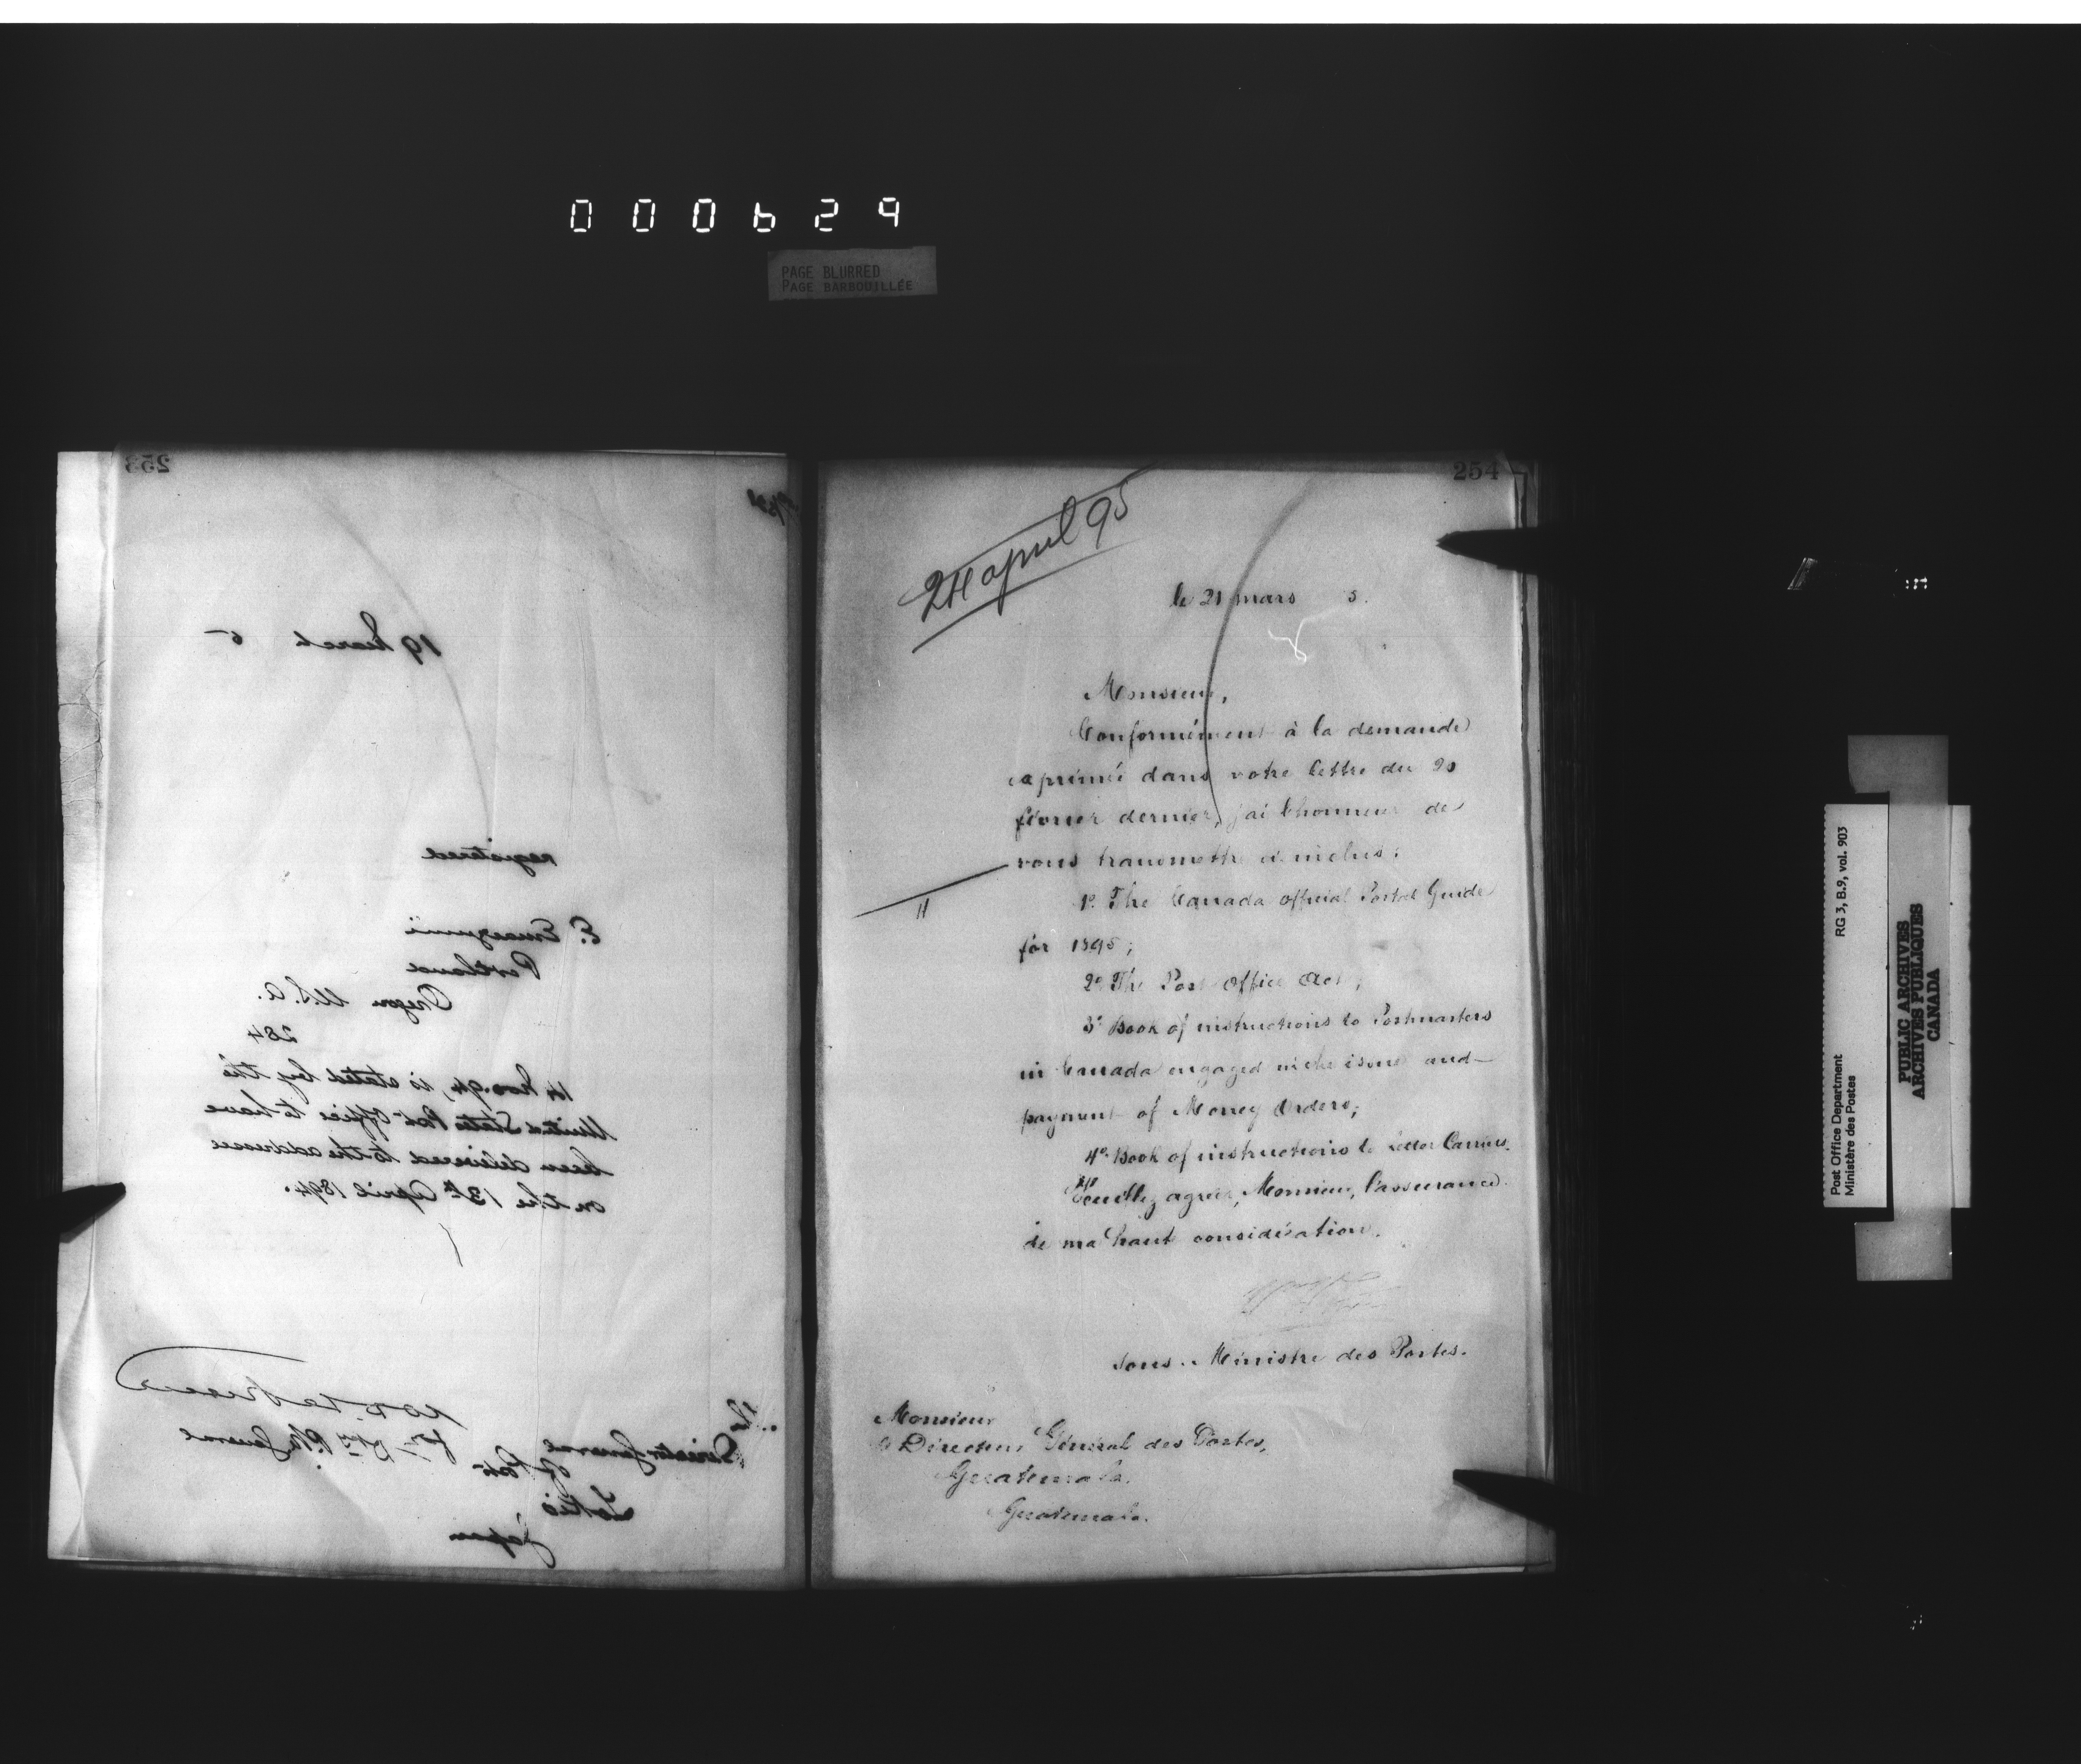 000629
PAGE BLURRED
PAGE BARBOUILLÉE
253
19 March 5
registered
E. Emaizumi
Portland
Oregon U.S.A.
284
14 Nov. 94, is stated by the
United States Post Office to have
been delivered to the addressee
on the 13th April 1894.
for Dty P.M. General
Director General
of Posts
Tokio
Japan
254
24 april 95
le 21 mars 5.
Monsieur,
Conformément à la demande
exprimée dans votre lettre du 20
février dernier, j'ai l'honneur de
vous transmettre ci-inclus:
1º. The Canada Official Postal Guide
for 1895;
2º The Post Office Act;
3º Book of instructions to Postmasters
in Canada engaged in the issue and
payment of Money Orders;
4º. Book of instructions to Letter Carriers.
Veuillez agréer, Monsieur, l'assurance
de ma haut considération.
Sous-Ministre des Postes.
Monsieur
le Directeur Général des Postes,
Guatemala.
Guatemala.
Post Office Department
Ministère des Postes
RG 3, B.9, vol. 903
PUBLIC ARCHIVES
ARCHIVES PUBLIQUES
CANADA